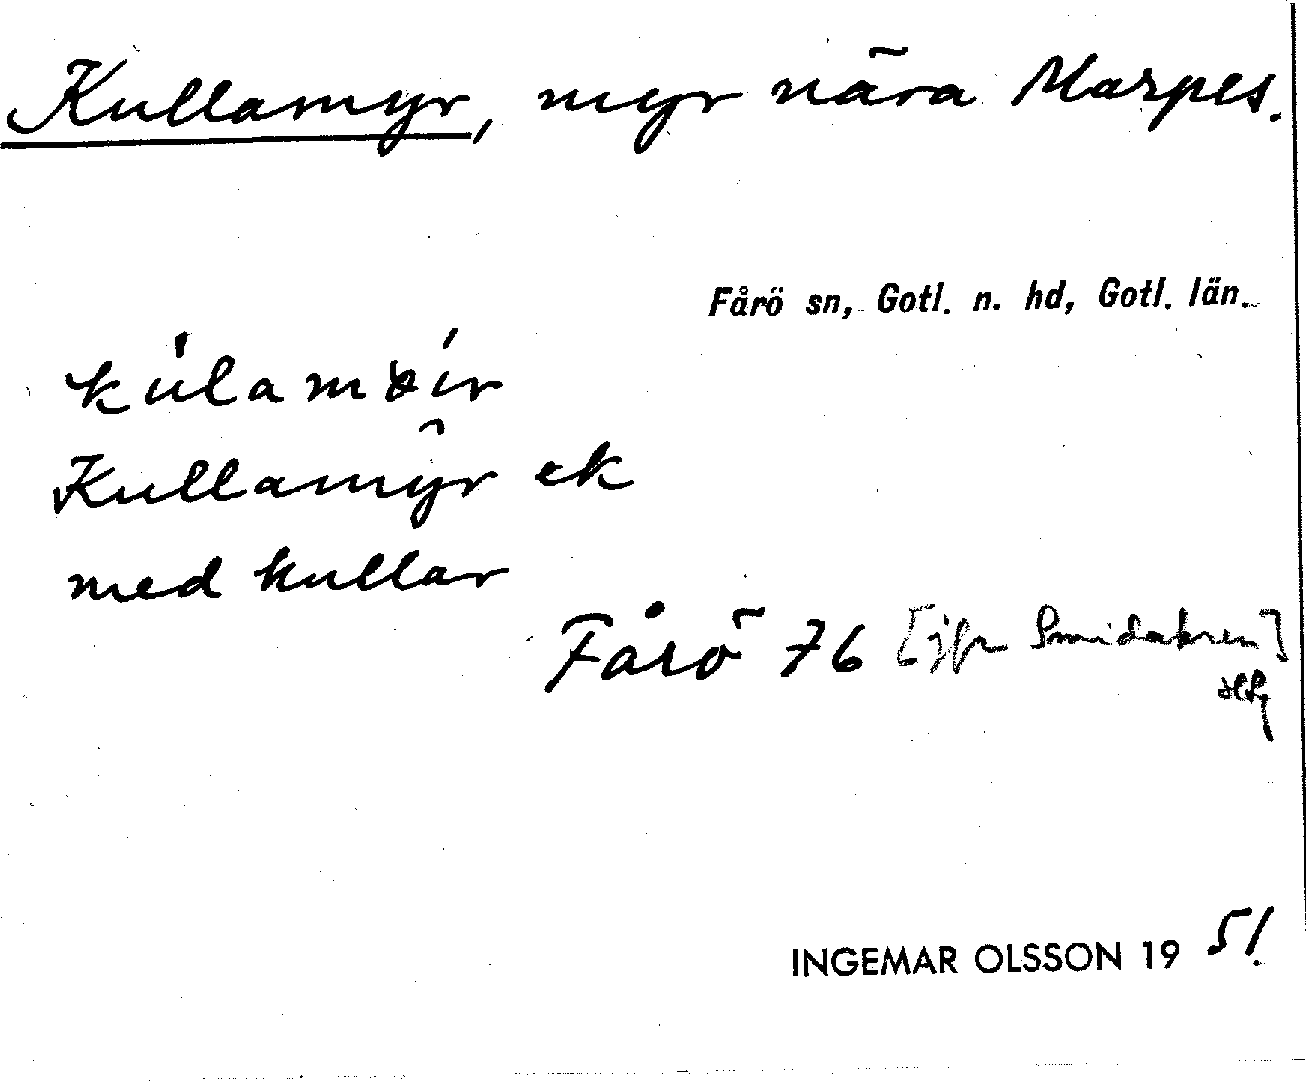 Kullamyr, myr nära Marpes.
Fårö sn, Gotl. n. hd, Gotl. län.
Kullamŷr ek
med kullar
Fårö 76 [jfr Smidakren]
INGEMAR OLSSON 19 51.